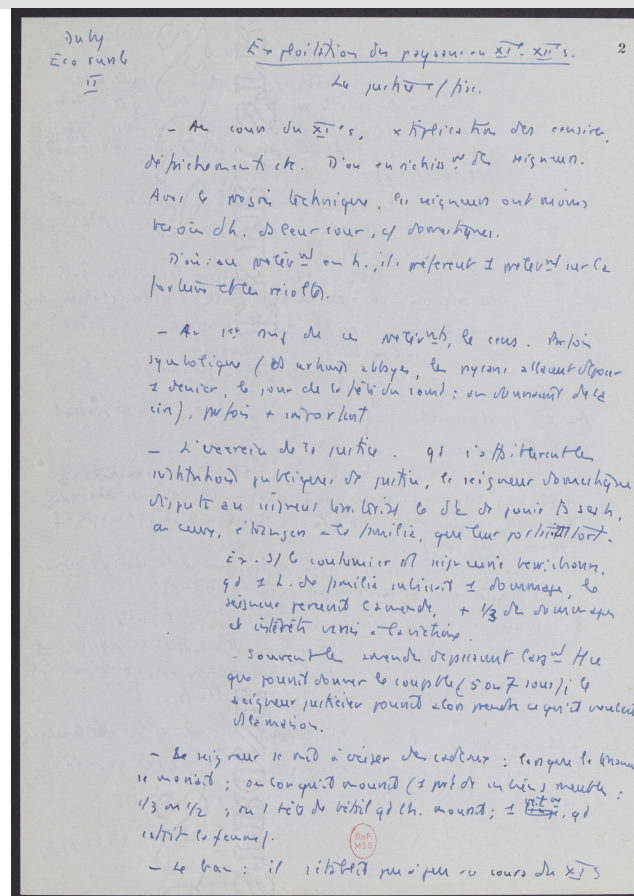 Duby
Eco rurale
II
2
Exploitation du paysan au XIe-XIIe s.
La justice / fisc.
- Au cours du XIe s, × tiplication des censives,
défrichements etc. D'où enrichiss nt des seigneurs.
Avec le progrès technique, les seigneurs ont moins
besoin d'h. ds leur cour, c/ domestiques.
D'où : au prélèv nt en h., ils préfèrent 1 prélèv nt sur la
fortune et les récoltes.
- Au 1er rang de ces prélèv nts, le cens. Parfois
symbolique ( abbayes, les paysans allaient déposer
1 denier, le jour de la fête du saint ; ou donnaient de la
cire), parfois + important
- L'exercice de la justice. qd s'effritèrent les
institutions publiques de justice, le seigneur domestique
dispute au seigneur le dt de punir ts ses h,
ou ceux, étrangers à la familia, que leur
Ex. S/ le coutumier d' seigneurie berrichonne,
qd 1 h. de familia subissait 1 dommage, le
seigneur percevait l'amende, + 1/3 des dommages
et intérêts versés à la victime.
- Souvent les amendes dépassaient l'arg nt
que pouvait donner le coupable (5 ou 7 sous) ; le
seigneur justicier pouvait alors prendre ce qu'il voulait
ds la maison.
- Le seigneur se mit à exiger des cadeaux : lorsque le
se mariait ; ou lorsqu'il mourait (1 part de ses biens meubles :
1/3 ou 1/2 ; ou 1 tête de bétail qd l'h. mourait ; 1 qd
c'était la femme).
BnF
MSS
- Le ban : il s'établit peu à peu au cours du XIe s